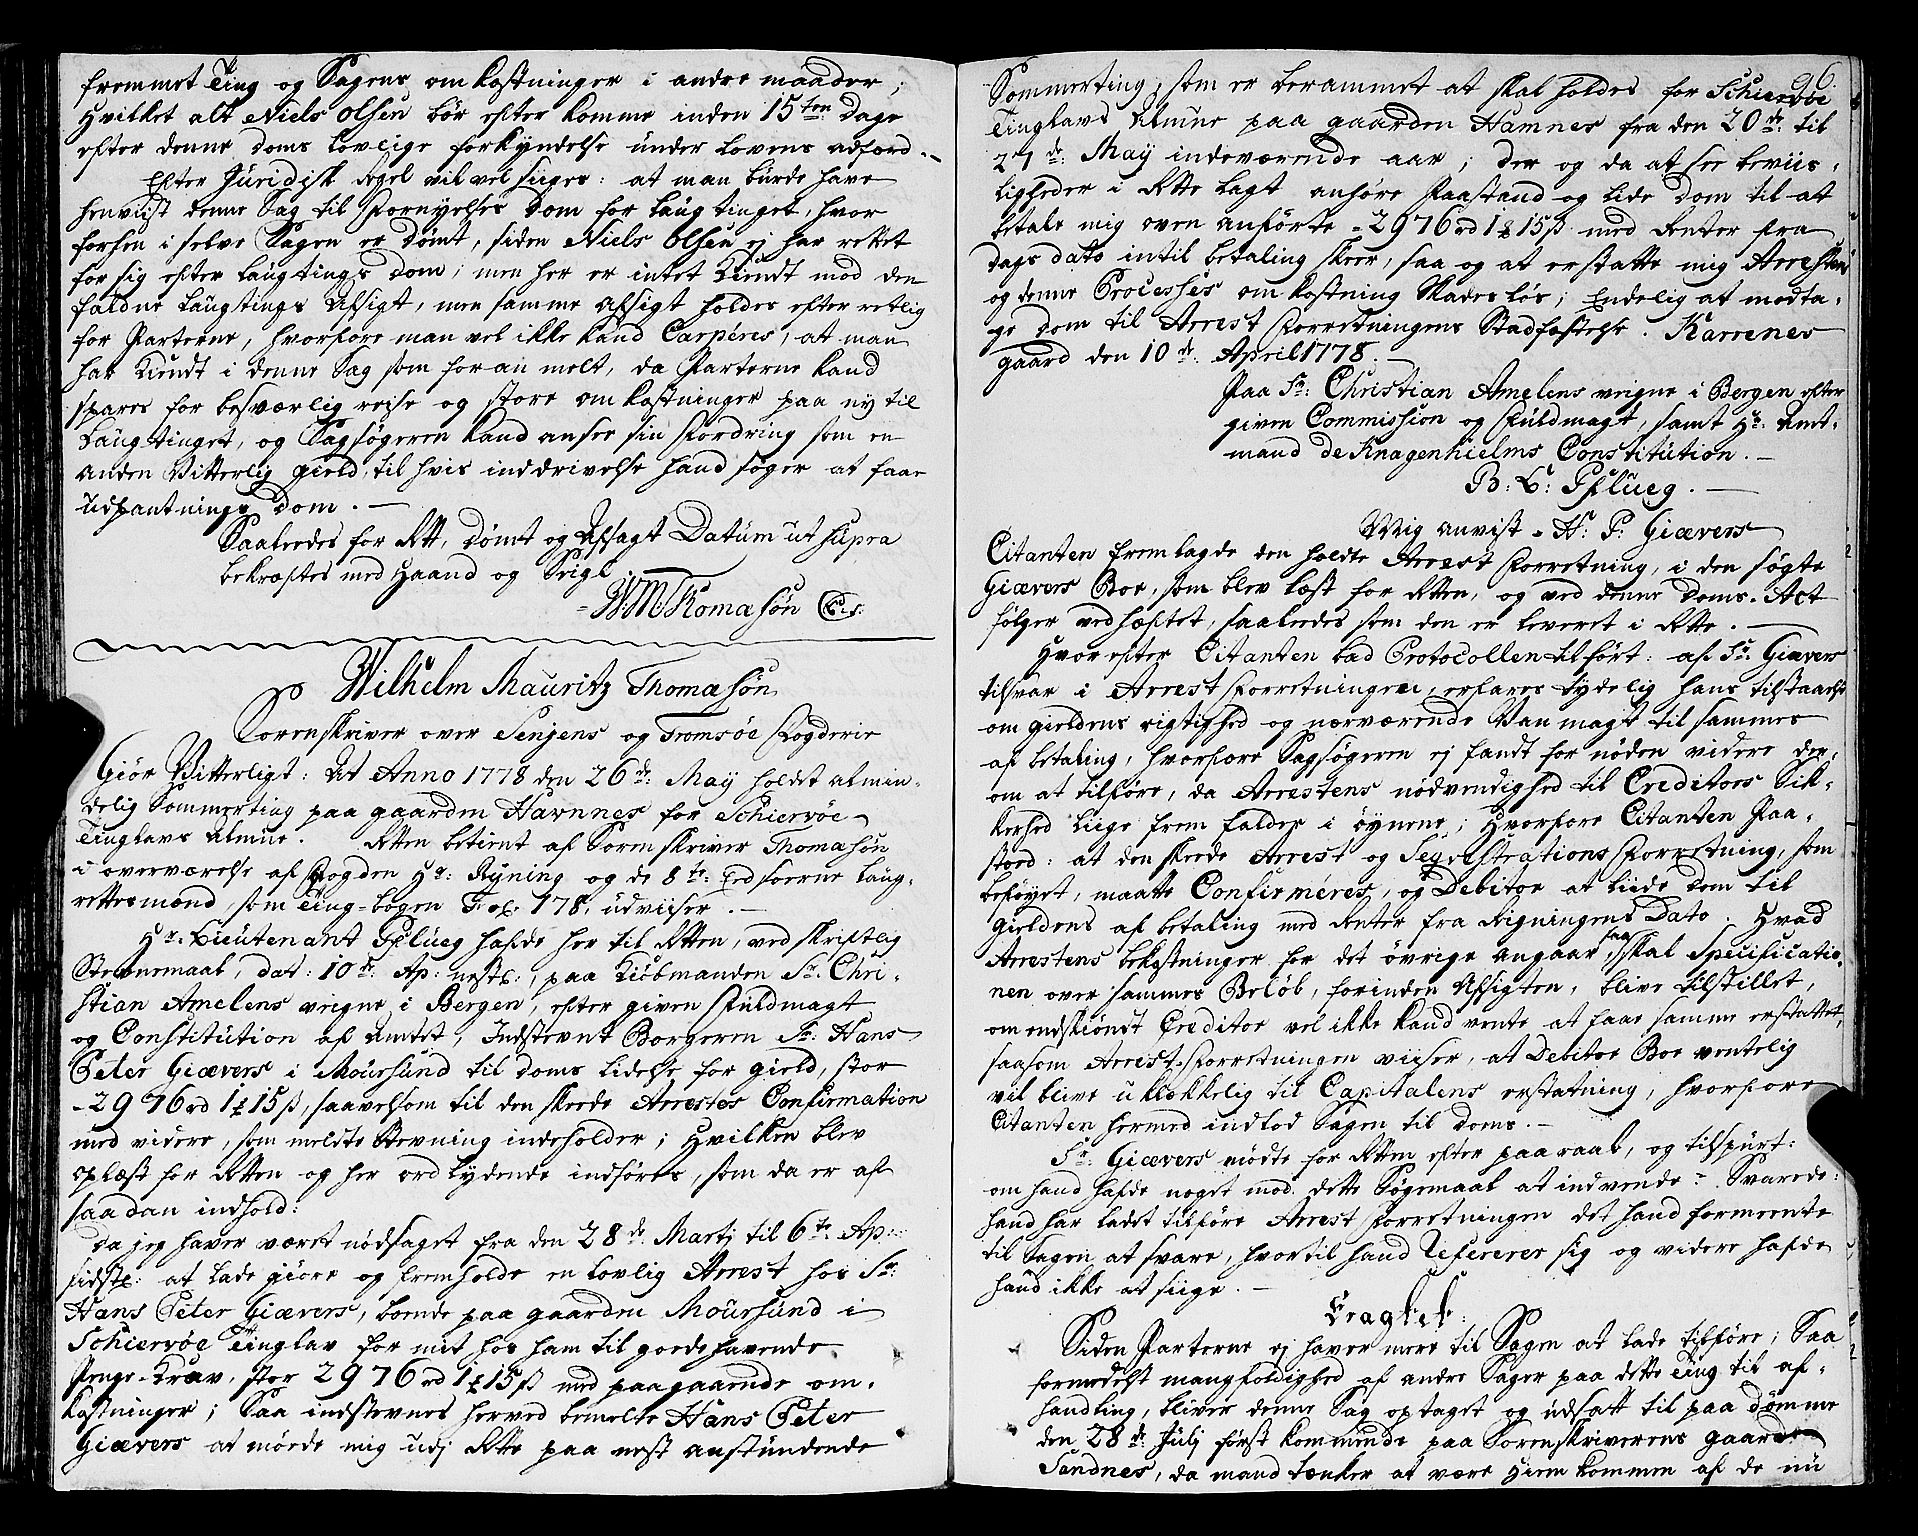 fremmet Ting og Sagens omkostninger i andre maader;
Hvilket alt Niels Olsen bör efter komme inden 15ten Dage
efter denne doms lovlige forkyndelse under lovens adfærd.
Efter Juridisk Regel vil vel siiges: at man burde have
henviist denne Sag til Fornyelses Dom for laugtinget, hvor
forhen i selve Sagen er Dömt, siden Niels Olsen ej har rettet
for sig efter laugtings Dom; men her er intet kiendt mod den
faldne laugtings Afsigt, men samme afsigt holdes efter retlig
for Parterne, hvorfore man vel ikke kand Carpéres, at man
har kiendt i denne Sag som foran melt, da Parterne kand
spares for besværlig reise og store omkostninger paa ny til
Laugtinget, og Sagsögeren kand ansee sin Fordring som en
anden Vitterlig gield, til hvis inddrivelse hand söger at faae
udpantnings Dom.
Saaledes for Rett, Dömt og Afsagt Datum ut supra
bekræftes med Haand og Seigl
W. M. Thomasön
Wilhelm Mauritz Thomasön
Sorenskriver over Senjens og Tromsöe Fogderie
Giör Vitterligt: At Anno 1778 den 26de May holdt almin-
delig Sommerting paa gaarden Havnnes for Schiervöe
Tinglavs Almue. Retten betient af Sorenskriver Thomasön
i overværelse af Fogden Hr. Ryning og de 8te Edsoerne laug-
rettesmænd, som Ting-bogen Fol: 178, udviiser.
Hr. Lieutenant Pflueg hafde her til Retten, ved skriftlig
Stevnemaal, dat: 10de Ap: nestl:, paa Kiöbmanden Sr. Chri-
stian Amelens veigne i Bergen, efter given Fuldmagt
og Constitution af Amtet, Indstevnt Borgeren Sr: Hans
Peter Giævers i Moursund til doms lidelse for gield, stor
-2976 rd 1 15 ß, saavelsom til den skeede Arrestes Confirmation
med videre, som meldte Stevning indeholder; Hvilken blev
oplæst for Retten og her ordlydende indföres, som da er af
saadan indhold:
Da jeg haver været nödsaget fra den 28de Martj til 6te Ap:
sidstl: at lade giöre og fremholde en lovlig Arrest hos Sr:
Hans Peter Giævers, boende paa gaarden Moursund i
Schiervöe Tinglav for mit hos ham til godehavende
Penge-Krav, stor 2976 rd 1 15 ß med paagaaende om-
kostninger; Saa indstevnes herved bemelte Hans Peter
Giævers at möede mig udj Rette paa nest anstundende
96.
Sommerting, som er berammet at skal holdes for Schiervöe
Tinglavs Almue paa gaarden Hamnes fra den 20de til
27de May indeværende aar; der og da at see beviis-
ligheder i Rette lagt anhöre Paastand og lide Dom til at
betale mig oven anförte -2976 rd 1 15 ß med Renter fra
dags dato intil betaling skeer, saa og at erstatte mig Arrestens
og denne Processes omkostning skadeslös; Endelig at modta-
ge dom til Arrest Forretningens Stadfæstelse. Karrenes
gaard den 10de April 1778.
Paa Sr: Christian Amelens veigne i Bergen efter
given Commission og Fuldmagt, samt Hr: Amt-
mand de Knagenhielms Constitution.
B: L: Pflueg.
Mig anviist - H: P: Giævers
Citanten fremlagde den holdte Arrest Forretning, i den sögte
Giævers Boe, som blev læst for Retten, og ved denne Doms-Act
fölger vedhæftet, saaledes som den er leveret i Rette.
Hvorefter Citanten bad Protocollen tilfört: af Sr. Giævers
tilsvar i Arrest Forretningen, erfares tydelig hans tilstaaelse
om gieldens rigtighed og nærværende Van magt til sammes
af betaling, hvorfore Sagsögeren ej fandt for nöden videre der-
om at tilföre, da Arrestens nödvendighed til Creditors Sik-
kerhed liige frem falder i öynene; Hvorfore Citanten Paa-
stod: at den skeede Arrest og Seqvestrations Forretning, som
beföyet, maatte Confirméres, og Debitor at liide Dom til
gieldens af betaling med Renter fra Regningens Dato. Hvad
Arrestens bekostninger for det övrige angaar, saa skal Specificatio-
nen over sammes Belöb, forinden Afsigten, blive tilstillet,
omendskiöndt Creditor vel ikke kand vente at faae samme erstattet,
saasom Arrest-Forretningen viiser, at Debitor Boe ventelig
vil blive utilstrækkelig til Capitalens erstatning, hvorfore
Citanten hermed indlod Sagen til Doms.
Sr. Giævers mödte for Retten efter paaraab, og tilspurt:
om hand hafde noget mod dette Sögemaal at indvende? Svarede:
hand har ladet tilföre Arrest Forretningen det hand formeente
til Sagen at svare, hvortil hand Refererer sig og videre hafde
hand ikke at siige.
Eragtet:
Siden Parterne ej haver mere til Sagen at lade tilföre; Saa
formedelst mangfoldighed af andre Sager paa dette Ting til af-
handling, bliver denne Sag optaget og udsatt til paa dömme
den 28de Julj först kommende paa Sorenskriverens gaard
Sandnes, da mand tænker at være Hiem kommen af de nu